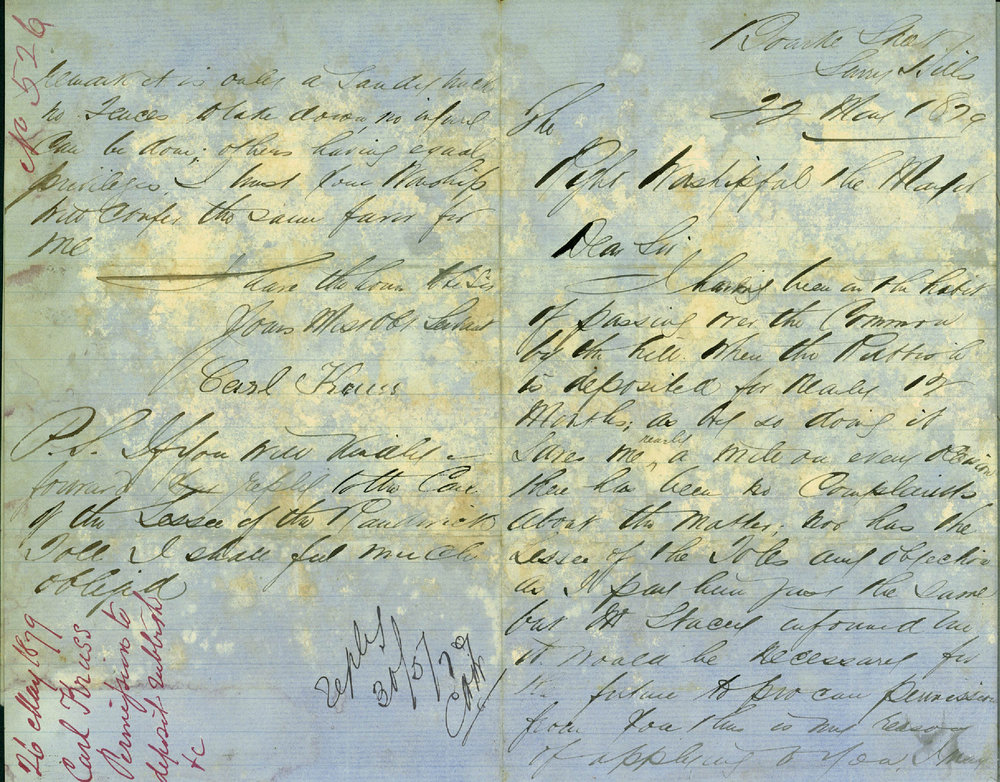 Bourke Street
Surry Hills
22 May 1879
The
Right Worshipful the Mayor
Dear Sir
I having been in the habit
of passing over the Common
by the hill when the Rubbish
is deposited for nearly 12
Months; as by so doing it
Saves me nearly a mile on every occasion
there has been no Complaints
about the matter; nor has the
Lessee of the Toles any objection
as I pay him just the same
but Mr Stacey informed me
it would be necessary for
the future to procure permission
from You this is my reason
of applying to You I may
remark it is only a Sandy track
no Fences to take down, no injury
Can be done; others having equal
privileges, I trust Your Worship
will Confer the same favor for
me
I have the honor to be Sir
Yours Most Obt Servant
Carl Kruss
P.S. If You will kindly
forward reply to the Care
of the Lessee of the Randwick
Toll I shall feel much
obliged
No 526
26 May 1879
Carl Kruss
Permission to
deposit rubbish
&c
reply
30/5/79